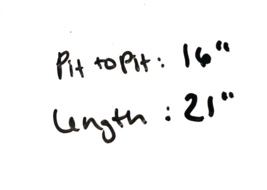 Pit to Pit: 16"
Length: 21"